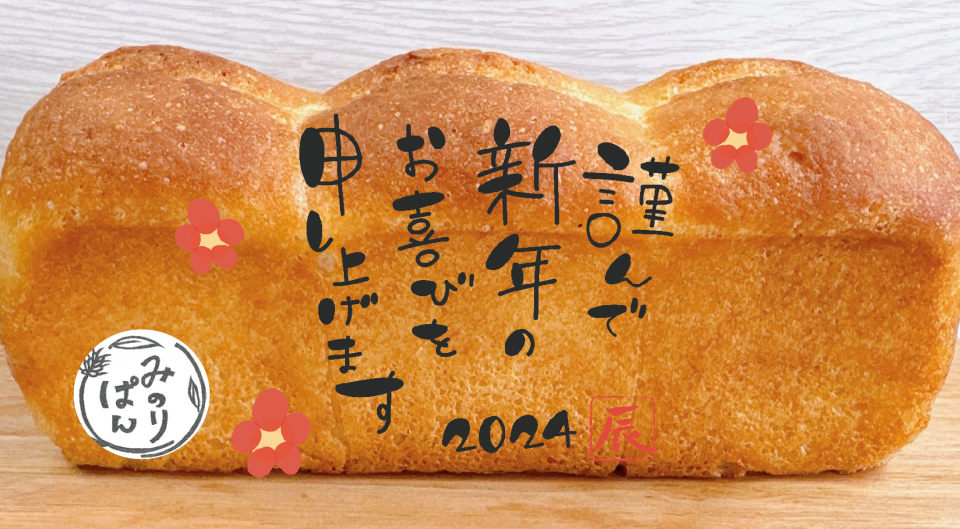 謹んで
新年の
お喜びを
申し上げます
2024
辰
みのり
ぱん